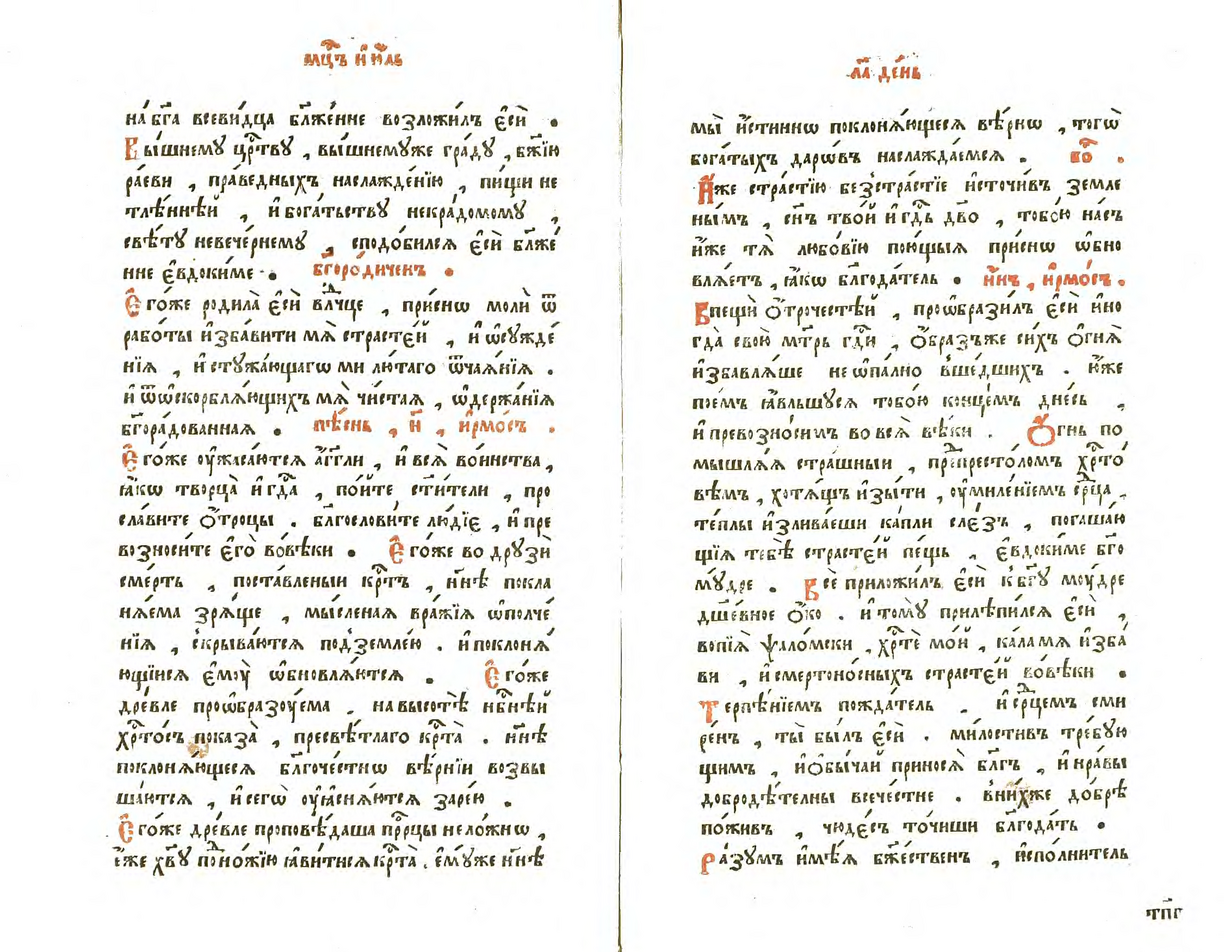 мцⷭ҇ъ і҆ю́ль
на бг҃а всеви́дца бл҃же́нне возложи́лъ є҆сѝ .
Вы́шнему црⷭ҇тву , вы́шнемуже гра́ду , бж҃їю
ра́еви , пра́ведныхъ наслажде́нїю , пи́щи не
тлѣ́ннѣй , и҆ бога́тьству некра́домому ,
свѣ́ту невече́рнему , сподо́бился є҆сѝ бл҃же́
нне є҆вдоки́ме . бг҃оро́диченъ .
Є҆го́же родила̀ є҆сѝ влⷣчце , при́снѡ молѝ ѿ
рабо́ты и҆зба́вити мѧ̀ страсте́й , и҆ ѡ҆сужде́
нїѧ , и҆ стужа́ющагѡ ми лю́таго ѿча́ѧнїѧ .
и҆ ѿ ѡ҆скорблѧ́ющихъ мѧ̀ чи́стаѧ , ѡ҆держа́нїѧ
бг҃ора́дованнаѧ . пѣ́снь , и҃ , і҆рмо́съ .
Є҆го́же оу҆жаса́ютсѧ а҆́гг҃ли , и҆ всѧ̀ во́инства ,
ꙗ҆́кѡ творца̀ и҆ гдⷭ҇а , по́йте ст҃и́тели , про
сла́вите ѻ҆́троцы . бл҃гослови́те лю́дїє , и҆ пре
возноси́те є҆го̀ во вѣ́ки . Є҆го́же во дру́зіи
сме́рть , поста́вленыи крⷭ҇тъ , нн҃ѣ покла
нѧ́ема зрѧ́ще , мы́сленаѧ вра́жїѧ ѡ҆полче́
нїѧ , скрыва́ютсѧ под̾ земле́ю . и҆ поклонѧ́
ющїисѧ є҆мꙋ̀ ѡ҆бновлѧ́ютсѧ . Є҆го́же
дре́вле проѡбразꙋ́ема . на высотѣ̀ нбⷭ҇нѣй
хрⷭ҇то́съ показа̀ , пресвѣ́тлаго крⷭ҇та̀ . нн҃ѣ
поклонѧ́ющесѧ бл҃гоче́стнѡ вѣ́рнїи возвы
ша́ютсѧ , и҆ сегѡ̀ оу҆ꙗснѧ́ютсѧ заре́ю .
Є҆го́же дре́вле проповѣ́даша прⷪ҇ро́цы нело́жнѡ ,
є҆́же хв҃ꙋ подно́жїю ꙗ҆ви́тисѧ крⷭ҇та̀ . є҆мꙋ́же нн҃ѣ
л҃а де́нь
мы̀ и҆́стиннѡ поклонѧ́ющесѧ вѣ́рнѡ , тогѡ̀
бога́тыхъ дарѡ́въ наслажда́емсѧ . бо҃ .
И҆́же стра́стїю безстра́стїє и҆сточи́въ земле
ны́мъ , сн҃ъ тво́й и҆ гдⷭ҇ь дв҃о , тобо́ю на́съ
и҆́же тѧ̀ любо́вїю пою́щыѧ при́снѡ ѡ҆бно
влѧ́етъ , ꙗ҆́кѡ бл҃года́тель . и҆́нъ , і҆рмо́съ .
В пещѝ ѻ҆трочестѣ́й , проѡбрази́лъ є҆сѝ и҆но
гда̀ свою̀ мт҃рь гдⷭ҇и , ѻ҆́бразъже си́хъ ѻ҆гнѧ̀
и҆збавлѧ́ше неѡпа́лно вше́дшихъ . ю҆́же
пое́мъ ꙗ҆́вльшꙋсѧ тобо́ю конце́мъ дне́сь ,
и҆ превозно́симъ во всѧ̀ вѣ́ки . Ѻ҆́гнь по
мышлѧ́ѧ стра́шныи , пред̾ прⷭ҇то́ломъ хрⷭ҇то́
вѣмъ , хотѧ́щъ и҆зы́ти , оу҆миле́нїемъ срⷣца ,
те́плы и҆злива́еши ка́пли сле́зъ , погаша́ю
щїѧ тебѣ̀ страсте́й пе́щь , є҆вдоки́ме бг҃о
мꙋ́дре . Всѐ приложи́лъ є҆сѝ к̾ бг҃ꙋ моу́дре
дш҃е́вное ѻ҆́ко . и҆ томꙋ̀ прилѣпи́лсѧ є҆сѝ ,
вопїѧ̀ ѱало́мски , хрⷭ҇тѐ мо́й , ка́ла мѧ̀ и҆зба́
ви , и҆ смертоно́сныхъ страсте́й во вѣ́ки .
Терпѣ́нїемъ пожда́тель . и҆ срⷣцемъ сми
ре́нъ , ты̀ бы́лъ є҆сѝ . ми́лостивъ тре́бꙋю
щимъ , и҆ ѻ҆бы́чаи приносѧ̀ бл҃гъ , и҆ нра́вы
добродѣ́телны всече́стне . в ни́хже до́брѣ
пожи́въ , чюде́съ то́чиши бл҃года́ть .
Ра́зꙋмъ и҆мѣ́ѧ бж҃е́ственъ , и҆сполни́тель
тп҃г